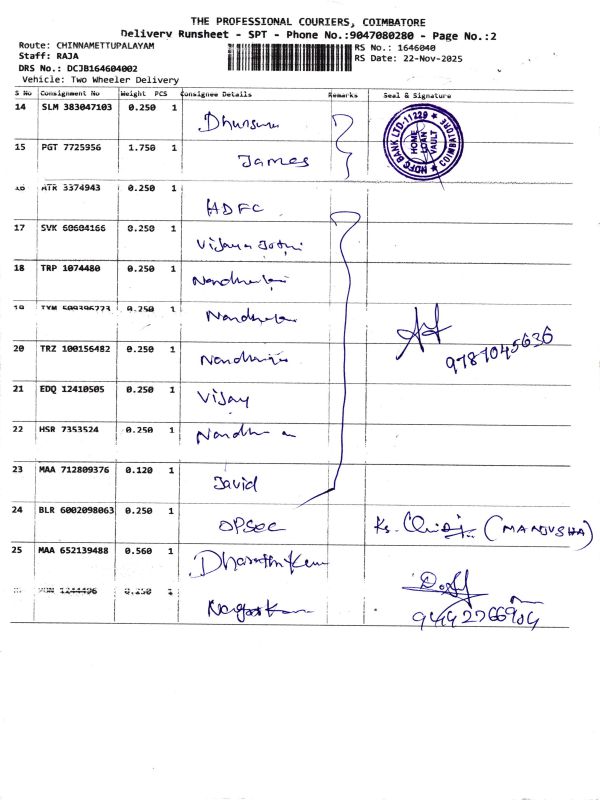 THE PROFESSIONAL COURIERS, COIMBATORE
Delivery Runsheet - SPT - Phone No.:9047080280 - Page No.:2
Route: CHINNAMETTUPALAYAM
Staff: RAJA
DRS No.: DCJB164604002
Vehicle: Two Wheeler Delivery
RS No.: 1646040
RS Date: 22-Nov-2025
S No Consignment No Weight PCS Consignee Details Remarks Seal & Signature
14 SLM 383047103 0.250 1
HDFC BANK LTD-11229 * COIMBATORE *
HOME LOAN VAULT
15 PGT 7725956 1.750 1 James
16 ATR 3374943 0.250 1 HDFC
17 SVK 60604166 0.250 1 Vijaya
18 TRP 1074480 0.250 1
19 0.250 1
9787045636
20 TRZ 100156482 0.250 1
21 EDQ 12410505 0.250 1 Vijay
22 HSR 7353524 0.250 1
23 MAA 712809376 0.120 1 Javid
24 BLR 6002098063 0.250 1 OPSEC (MANJUSHA)
25 MAA 652139488 0.560 1
1244496 0.250 1
9442766904